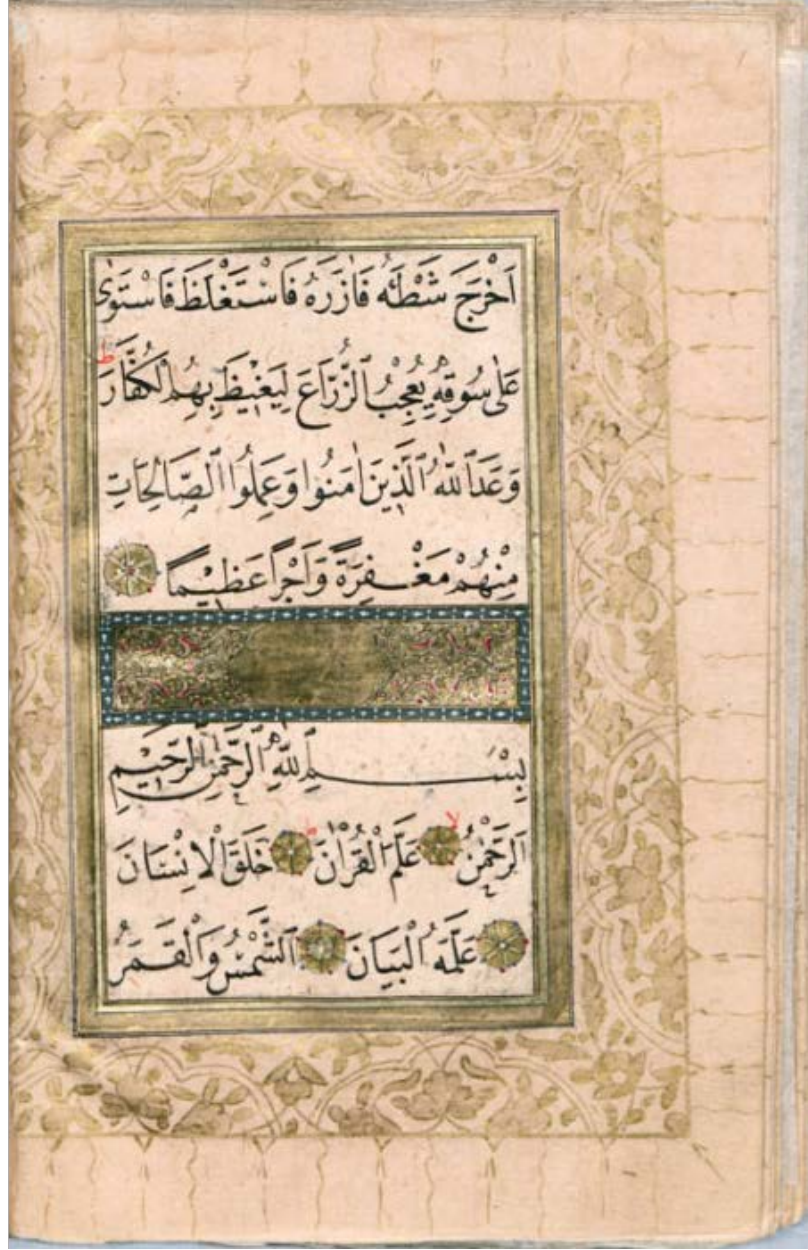 اَخْرَجَ شَطْئَهُ فَاٰزَرَهُ فَاسْتَغْلَظَ فَاسْتَوٰى
عَلٰى سُوقِهٖ يُعْجِبُ الزُّرَّاعَ لِيَغٖيظَ بِهِمُ الْكُفَّارَ ط
وَعَدَ اللّٰهُ الَّذٖينَ اٰمَنُوا وَعَمِلُوا الصَّالِحَاتِ
مِنْهُمْ مَغْفِرَةً وَاَجْرًا عَظٖيمًا
بِسْمِ اللّٰهِ الرَّحْمٰنِ الرَّحٖيمِ
اَلرَّحْمٰنُ لا عَلَّمَ الْقُرْاٰنَ ط خَلَقَ الْاِنْسَانَ
عَلَّمَهُ الْبَيَانَ اَلشَّمْسُ وَالْقَمَرُ